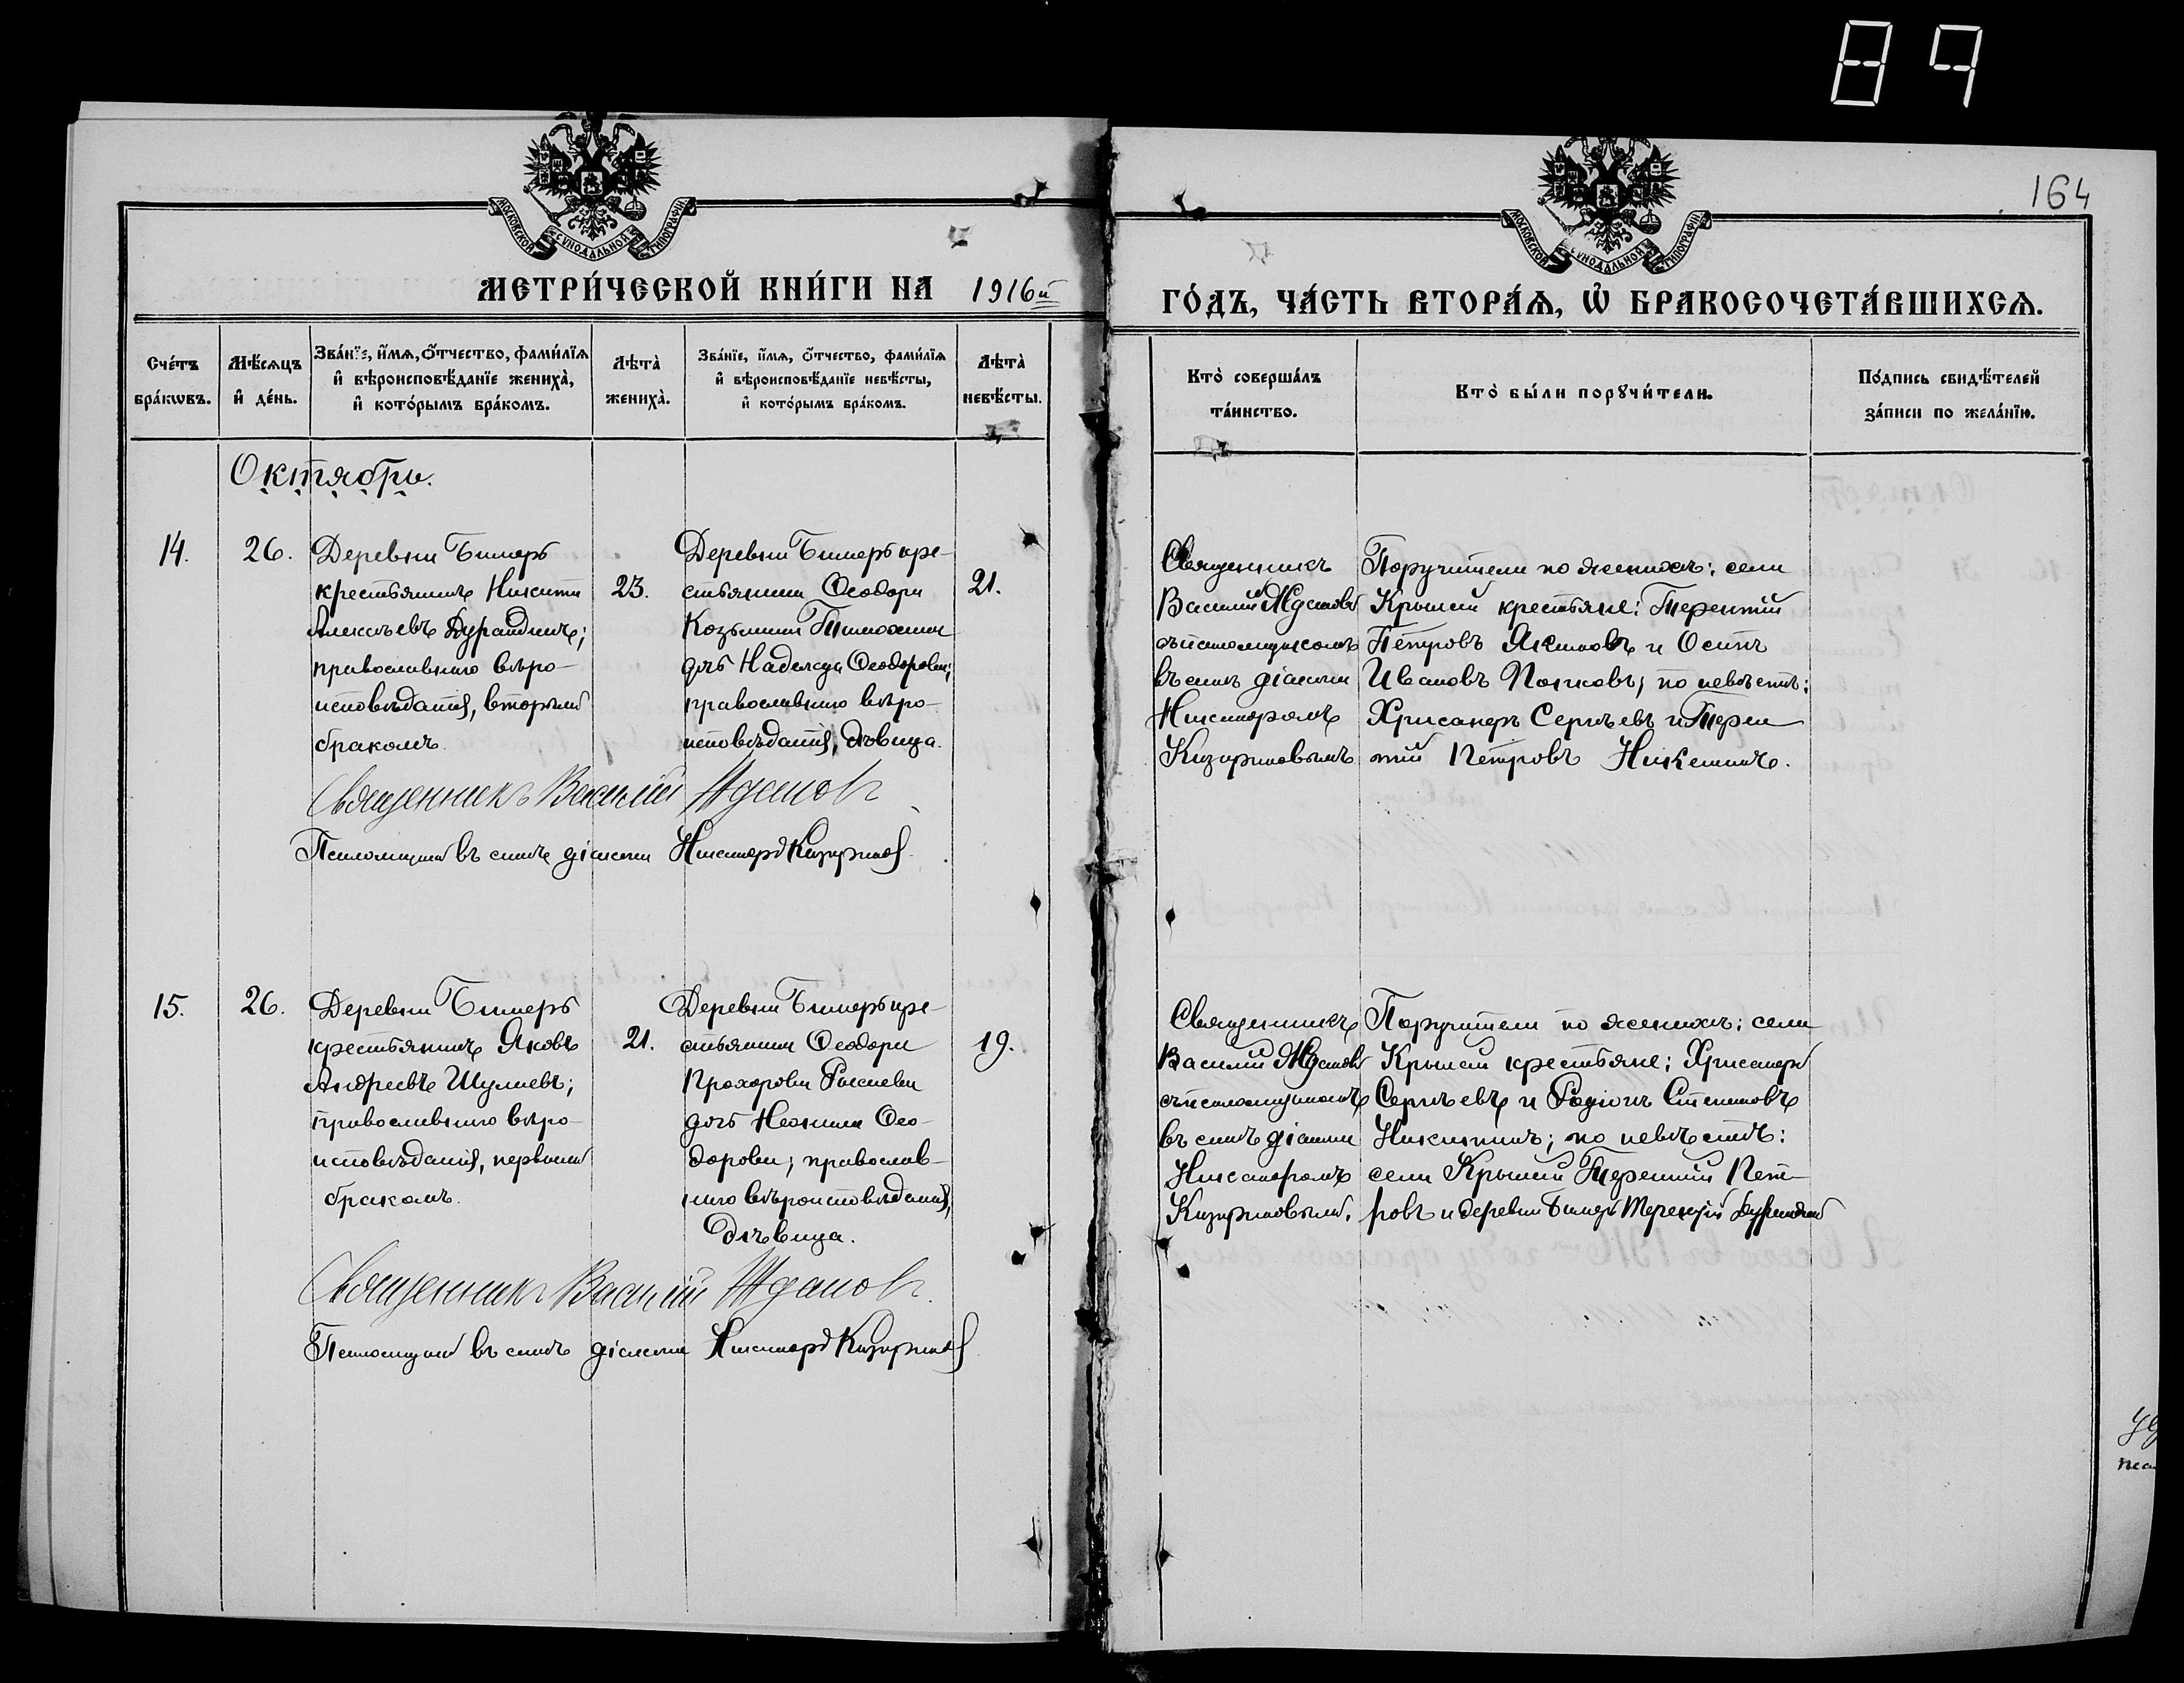 89
164
МОСКОВСКОЙ СУНОДАЛЬНОЙ ТИПОГРАФІИ
МОСКОВСКОЙ СУНОДАЛЬНОЙ ТИПОГРАФІИ
МЕТРИ́ЧЕСКОЙ КНИ́ГИ НА 1916й
ГО́ДЪ, ЧА́СТЬ ВТОРА́Ѧ, Ѡ БРАКОСОЧЕТА́ВШИХСѦ.
Сче́тъ бра́кѡвъ.
Мѣ́сѧцъ и де́нь.
Зва́нїе, и́мѧ, ѻ́тчество, фами́лїѧ
и вѣроисповѣ́данїе жениха̀,
и кото́рымъ бра́комъ.
Лѣта̀ жениха̀.
Зва́нїе, и́мѧ, ѻ́тчество, фами́лїѧ
и вѣроисповѣ́данїе невѣ́сты,
и кото́рымъ бра́комъ.
Лѣта̀ невѣ́сты.
Кто̀ соверша́лъ
та́инство.
Кто̀ бы́ли порꙋчи́тели.
По́дпись свидѣ́телей
за́писи по жела́нїю.
Октябрь.
14.
26.
Деревни Бимеръ
крестьянинъ Никита
Алексѣевъ Дурандинъ;
православнаго вѣро-
исповѣданія, вторымъ
бракомъ.
23.
Деревни Бимеръ кре-
стьянина Ѳеодора
Козьмина Тимохина
дочь Надежда Ѳеодорова;
православнаго вѣро-
исповѣданія, дѣвица.
21.
Священникъ
Василій Ждановъ
съ псаломщикомъ
въ санѣ діакона
Никаноромъ
Казариновымъ
Поручители по женихѣ: села
Крымъ крестьяне: Терентій
Петровъ и Осипъ
Ивановъ по невѣстѣ:
Хрисанѳъ Сергѣевъ и Терен
тій Петровъ Никитинъ.
Священникъ Василій Ждановъ
Псаломщикъ въ санѣ діакона Никаноръ Казариновъ
15.
26.
Деревни Бимеръ
крестьянинъ Яковъ
Андреевъ Шулаевъ;
православнаго вѣро-
исповѣданія, первымъ
бракомъ.
21.
Деревни Бимеръ кре-
стьянина Ѳеодора
Прохорова
дочь Неонила Ѳео-
дорова; православ-
наго вѣроисповѣданія,
дѣвица.
19.
Священникъ
Василій Ждановъ
съ псаломщикомъ
въ санѣ діакона
Никаноромъ
Казариновымъ.
Поручители по женихѣ: села
крестьяне: Хрисанѳъ
Сергѣевъ и Родіонъ Степановъ
Никитинъ; по невѣстѣ:
села Терентій Пет-
ровъ и деревни Бимеръ Терентій Дурандинъ
Священникъ Василій Ждановъ.
Псаломщикъ въ санѣ діакона Никаноръ Казариновъ